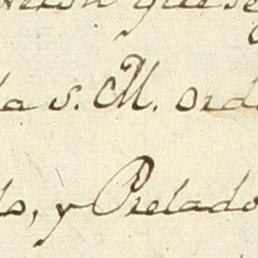 que se
la S. M. orde
do, y Prelado